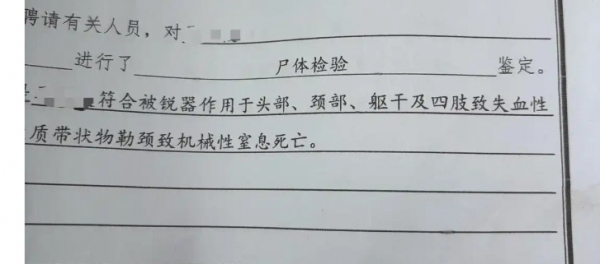 聘请有关人员，对
进行了 尸体检验 鉴定。
符合被锐器作用于头部、颈部、躯干及四肢致失血性
质带状物勒颈致机械性窒息死亡。